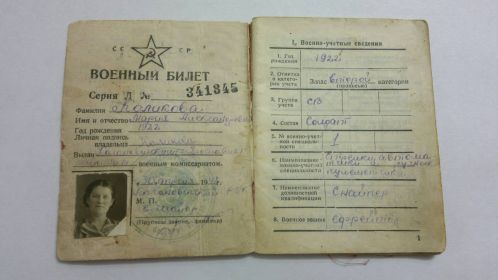 СС СР
ВОЕННЫЙ БИЛЕТ
Серия Д № 341345
Фамилия Поликова
Имя и отчество Мария Александровна
Год рождения 1922
Личная подпись
владельца
Выдан
военным комиссариатом.
апреля 194
М. П.
1
I. Военно-учетные сведения
1. Год рождения 1922
2. Отметка о категории учета Запас второй категории
(прописью)
3. Группа учета
4. Состав Солдат
5. № военно-учетной специальности 1
6. Наименование военно-учетной специальности Стрелки, автоматчики и ручные пулеметчики
7. Наименование должностной квалификации Снайпер
8. Военное звание Ефрейтор
1